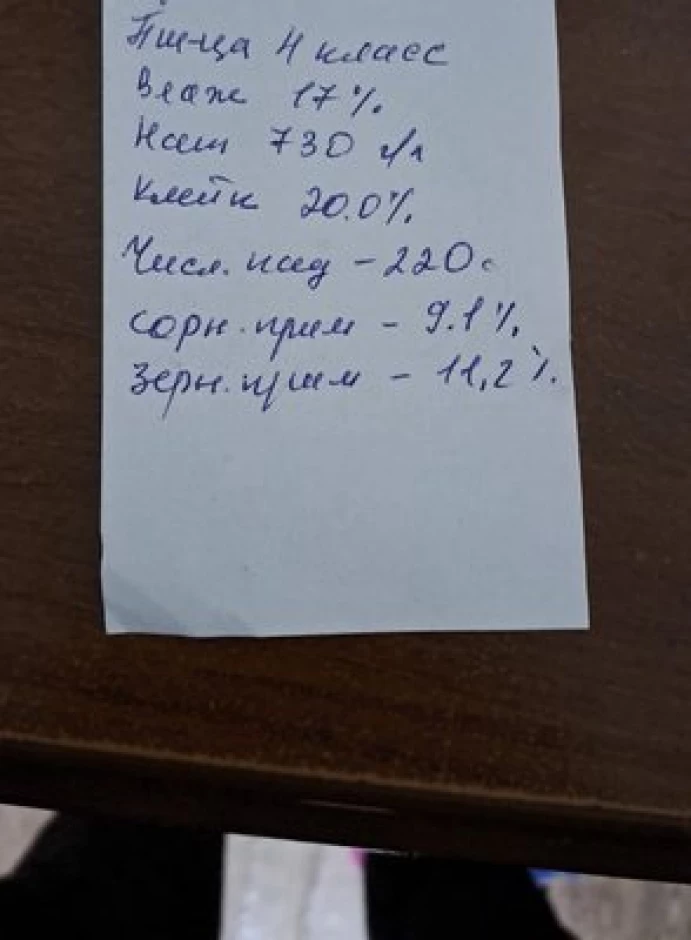 Пш-ца 4 класс
Влаж 17%.
Нат 730 г/л
Клейк 20.0%.
Числ. пад - 220с
Сорн. прим - 9.1%.
Зерн. прим - 11,2%.